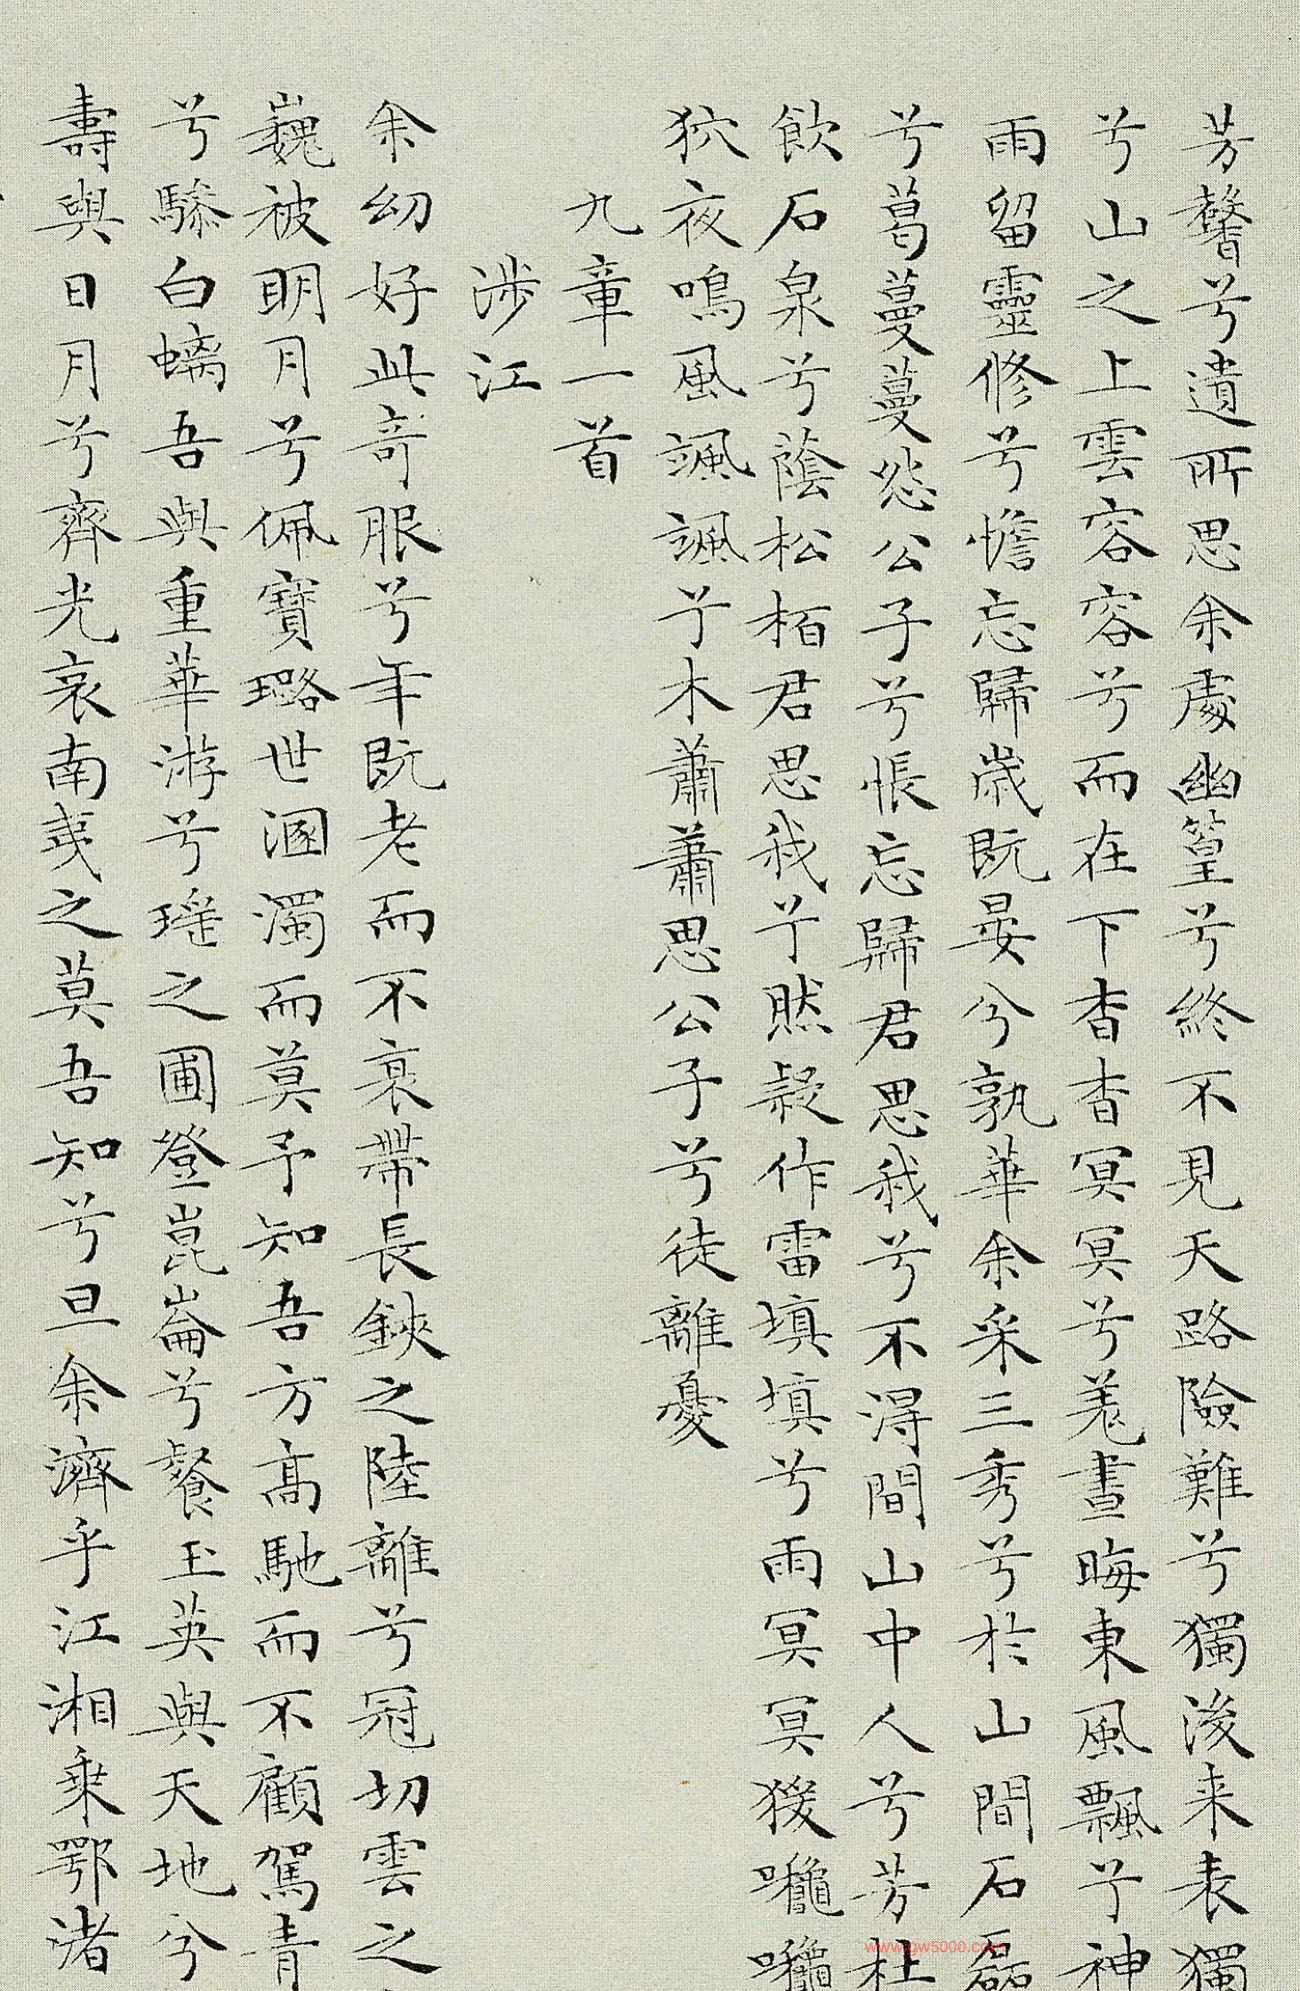 芳馨兮遺所思余處幽篁兮終不見天路險難兮獨後来表獨
兮山之上雲容容兮而在下杳杳冥冥兮羌晝晦東風飄兮神
雨留靈修兮憺忘歸歲既晏兮孰華余采三秀兮於山間石磊
兮葛蔓蔓怨公子兮悵忘歸君思我兮不得間山中人兮芳杜
飲石泉兮蔭松栢君思我兮然疑作雷填填兮雨冥冥猨
狖夜鳴風颯颯兮木蕭蕭思公子兮徒離憂
九章一首
涉江
余幼好此奇服兮年既老而不衰帶長鋏之陸離兮冠切雲之
巍被明月兮佩寶璐世溷濁而莫予知吾方高馳而不顧駕青
兮驂白螭吾與重華游兮瑤之圃登崑崙兮餐玉英與天地兮
壽與日月兮齊光哀南夷之莫吾知兮旦余濟乎江湘乘鄂渚
www.gw5000.com